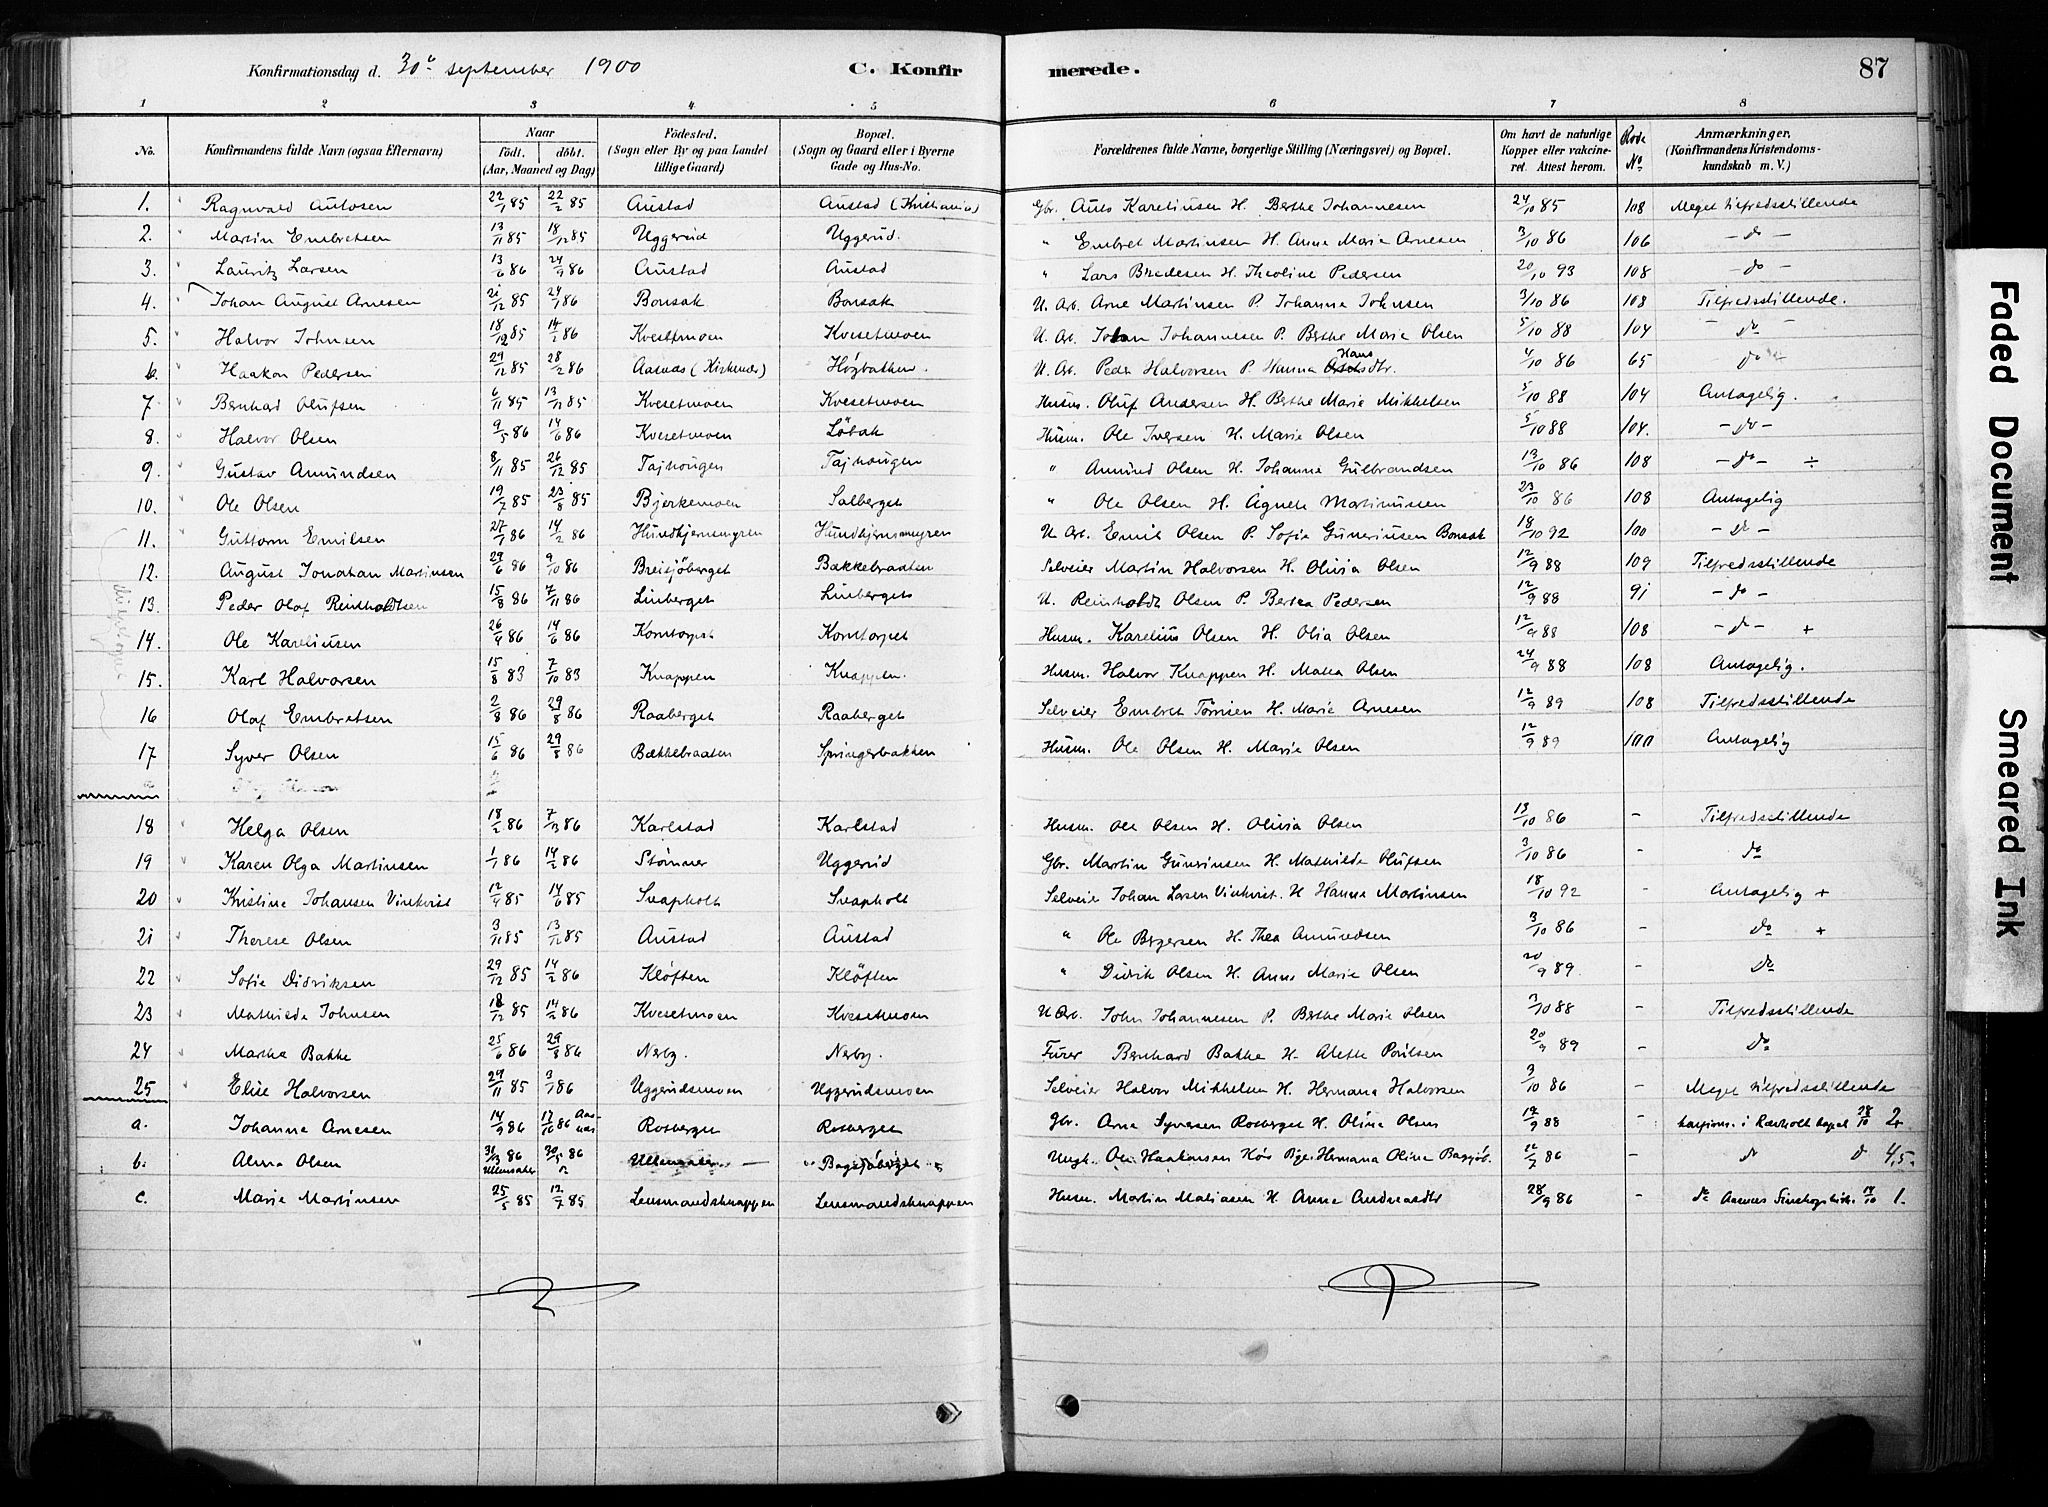 Konfirmationsdag d. 30te september 1900 C. Konfir merede. 87
1 2 3 4 5 6 7 8
No. Konfirmandens fulde Navn (ogsaa Efternavn) Naar født. døbt. (Aar, Maaned og Dag) Fødested. (Sogn eller By og paa Landet tillige Gaard) Bopæl. (Sogn og Gaard eller i Byerne Gade og Hus-No. Forældrenes fulde Navne, borgerlige Stilling (Næringsvei) og Bopæl. Om havt de naturlige Kopper eller vakcineret. Attest herom. Rode No Anmærkninger. (Konfirmandens Kristendomskundskab m. V.)
1. Ragnvald Autosen 22/1 85 22/2 85 Austad Austad (Kristiania) Gbr. Auto Kareliusen H. Berthe Johannesen 24/10 85 108 Meget tilfredsstillende
2. Martin Embretsen 13/11 85 18/12 85 Uggerud Uggerud. " Embret Martinsen H. Anne Marie Arnesen 3/10 86 106 - do -
3. Lauritz Larsen 13/6 86 24/9 86 Austad Austad " Lars Bredesen H. Theoline Pedersen 20/10 93 108 - do -
4. Johan August Arnesen 21/12 85 24/1 86 Bonsak Bonsak U. Arb. Arne Martinsen P. Johanna Johnsen 3/10 86 108 Tilfredsstillende.
5. Halvor Johnsen 18/12 85 14/2 86 Kvesetmoen Kvesetmoen U. Arb. John Johannesen P. Berthe Marie Olsen 5/10 88 104 - do -
6. Haakon Pedersen 29/12 85 28/2 86 Aasnæs (Kirkenær) Høgbakken. U. Arb. Peder Halvorsen P. Hanna Hansdtr. 4/10 86 65 do
7 Bernhard Olufsen 6/11 85 13/12 85 Kvesetmoen Kvesetmoen Husm. Oluf Andersen H. Berthe Marie Mikkelsen 5/10 88 104 Antagelig.
8. Halvor Olsen 9/5 86 14/6 86 Kvesetmoen Löbak Husm. Ole Iversen H. Marie Olsen 5/10 88 104. - do -
9. Gustav Amundsen 8/11 85 26/12 85 Tajhougen Tajhougen " Amund Olsen H. Johanne Gulbrandsen 13/10 86 108 - do - ÷
10. Ole Olsen 19/7 85 23/8 85 Bjerkemoen Solberget " Ole Olsen H. Agnete Martinussen 23/10 86 108 Antagelig
11. Guttorm Emilsen 27/1 86 14/2 86 Hundkjernmyren Hundkjernmyren U. Arb. Emil Olsen P. Sofie Guneriusen Bonsak 18/10 92 100 - do -
12. August Jonathan Martinsen 29/6 86 9/10 86 Breisjöberget Bakkebraaten Selveier Martin Halvorsen H. Olivia Olsen 12/9 88 109 Tilfredsstillende
13. Peder Olaf Reinholdtsen 15/8 86 7/11 86 Linberget Linberget U. Reinholdt Olsen P. Bertea Pedersen 12/9 88 91 - do -
14. Ole Kareliusen 26/4 86 14/6 86 Korntorpet Korntorpet Husm. Karelius Olsen H. Olia Olsen 12/9 88 108 - do - +
15. Karl Halvorsen 15/8 83 7/10 83 Knappen Knappen. Husm. Halvor Knappen H. Matea Olsen 24/9 88 108 Antagelig.
16 Olaf Embretsen 2/8 86 29/8 86 Raaberget Raaberget Selveier Embret Tørrisen H. Marie Arnesen 12/9 89 108 Tilfredsstillende
17 Syver Olsen 15/6 86 29/8 86 Bakkebraaten Springerbakken Husm. Ole Olsen H. Marie Olsen 12/9 89 100 Antagelig
18 Helga Olsen 18/2 86 7/3 86 Karlstad Karlstad Husm. Ole Olsen H. Olivia Olsen 13/10 86 - Tilfredsstillende
19 Karen Olga Martinsen 1/1 86 14/2 86 Stömner Uggerud Gbr. Martin Gunerinsen H. Mathilde Olufsen 3/10 86 - do
20 Kristine Johansen Vinkvist 12/4 85 14/6 85 Svapholt Svapholt Selveier Johan Larsen Vinkvist. H Hanna Martinsen 18/10 92 - Antagelig +
21 Therese Olsen 3/11 85 13/12 85 Austad Austad " Ole Bergersen H. Thea Amundsen 3/10 86 - do +
22 Sofie Didriksen 29/12 85 14/2 86 Klöften Klöften " Didrik Olsen H. Anne Marie Olsen 20/9 89. - do
23 Mathilde Johnsen 18/12 85 14/2 86 Kvesetmoen Kvesetmoen U Arb. John Johannesen P. Berthe Marie Olsen 3/10 88 - Tilfredsstillende
24 Marthe Bakke 25/6 86 29/8 86 Nerby. Nerby. Furer Bernhard Bakke H. Alette Poulsen 20/9 89 - do
25 Elise Halvorsen 29/11 85 3/1 86 Uggerudsmoen Uggerudsmoen Selveier Halvor Mikkelsen H. Hermana Halvorsen 3/10 86 - Meget tilfredsstillende
a. Johanne Arnesen 14/9 86 17/10 86 Aasnæs Rosberget Rosberget Gbr. Arne Syversen Rosberget H. Oline Olsen 12/9 88 - konfirm. i Rævholt kapel 28/10 2.
b. Alma Olsen 31/3 86 Ullensaker 30/5 86 Ullensaker Ungk. Ole Haakonsen Pige Hermana Oline 12/7 86 - do do 4,5.
c. Marie Martinsen 25/5 85 12/7 85 Lensmandsknappen Lensmandsknappen Husm. Martin Matiasen H. Anne Andreasdtr 28/9 86 - do Aasnæs 14/10 1.
Faded Document
Smeared Ink